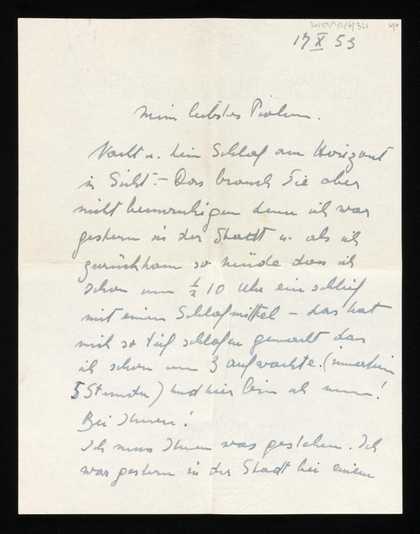 17 X 53
Mein liebstes
Nacht u. kein Schlaf am Horizont
in Sicht. – Das brauch Sie aber
nicht beunruhigen denn ich war
gestern in der Stadt u. als ich
zurückkam so müde dass ich
schon um ½ 10 Uhr einschlief
mit einem Schlafmittel – das hat
mich so tief schlafen gemacht das
ich schon um 3 aufwachte. (immerhin
5 Stunden) und hier bin ich nun!
Bei Ihnen!
Ich muss Ihnen was gestehen. Ich
war gestern in der Stadt bei einem